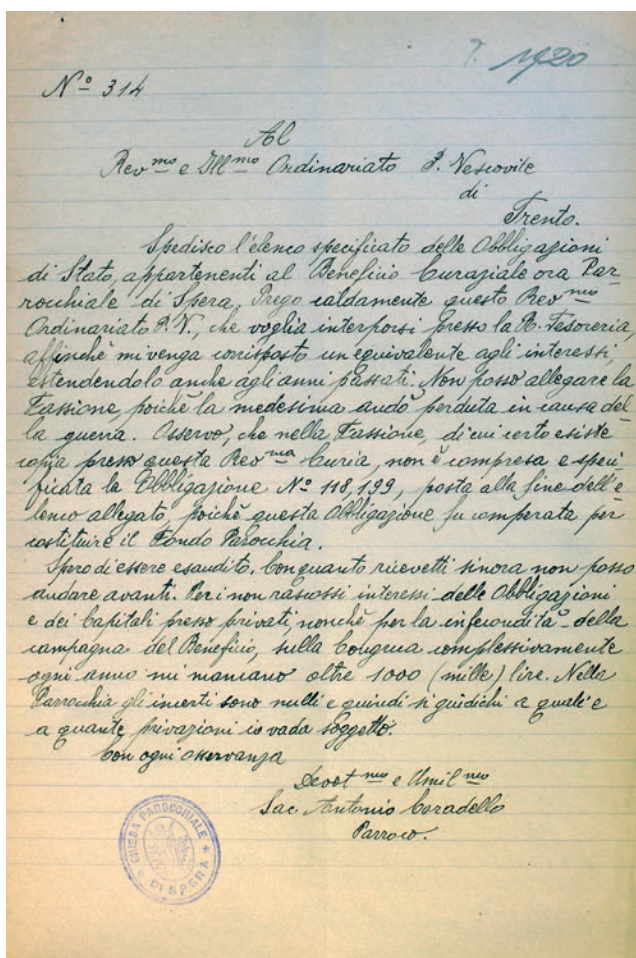 1920
Nº 314
Al
Rev.mo e Ill.mo Ordinariato P. Vescovile
di
Trento.
Spedisco l'elenco specificato delle Obbligazioni
di Stato, appartenenti al Beneficio Curaziale ora Par-
rocchiale di Spera. Prego caldamente questo Rev.mo
Ordinariato P. V., che voglia interporsi presso la R. Tesoreria,
affinchè mi venga corrisposto un equivalente agli interessi,
estendendolo anche agli anni passati. Non posso allegare la
Fassione, poichè la medesima andò perduta in causa del-
la guerra. Osservo, che nella Fassione, di cui certo esiste
copia presso questa Rev.ma Curia, non è compresa e speci-
ficata la Obbligazione Nº 118,199, posta alla fine dell'e-
lenco allegato, poichè questa Obbligazione fu comperata per
costituire il Fondo Parocchia.
Spero di essere esaudito. Con quanto ricevetti sinora non posso
andare avanti. Per i non riscossi interessi delle Obbligazioni
e dei Capitali presso privati, nonchè per la infecondità della
campagna del Beneficio, sulla Congrua complessivamente
ogni anno mi mancano oltre 1000 (mille) lire. Nella
Parrochia gli incerti sono nulli e quindi si giudichi a quali e
a quante privazioni io vada soggetto.
Con ogni osservanza
Devot.mo e Umil.mo
Sac. Antonio Coradello
Parroco.
CHIESA PAROCCHIALE
DI SPERA